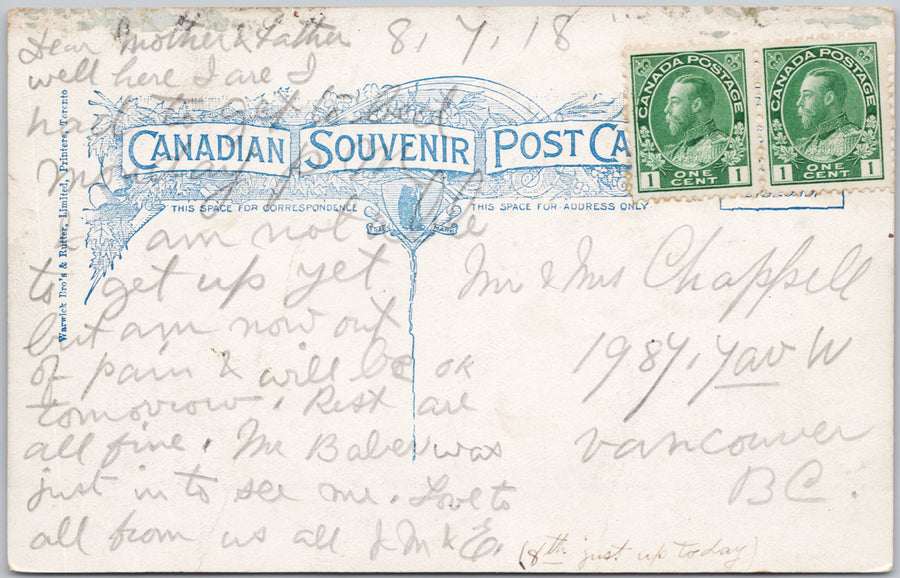 Dear Mother & Father 8, 7, 18
well here I are I
had to get to bed
CANADIAN SOUVENIR POST CA
Monday
THIS SPACE FOR CORRESPONDENCE
THIS SPACE FOR ADDRESS ONLY
TRADE MARK
I am not able
to get up yet
but am now out
of pain & will be ok
tomorrow. Rest are
all fine. Mr Baber was
just in to see me. Love to
all from us all J M & E.
(8th just up today)
Mr & Mrs Chappell
1987, 7 av W
Vancouver
BC.
CANADA POSTAGE
1 ONE CENT 1
CANADA POSTAGE
1 ONE CENT 1
Warwick Bro's & Rutter, Limited, Printers, Toronto